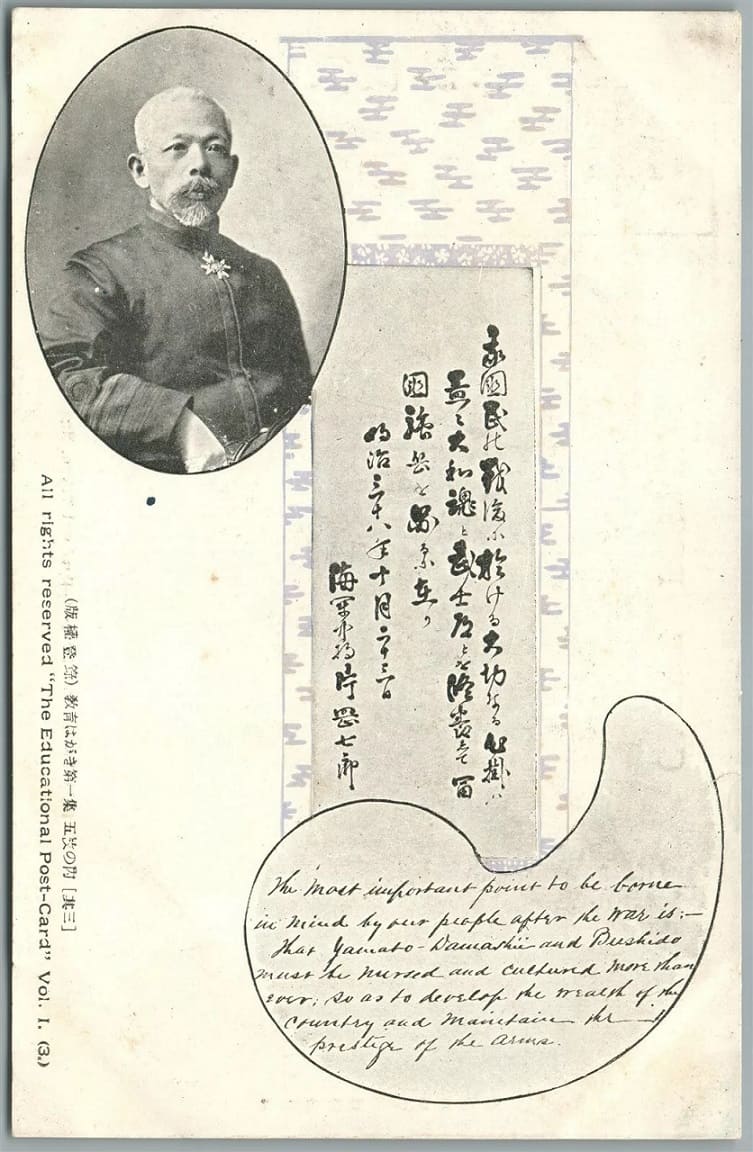 我國民の戰後に於ける大切なる心掛ハ
益々大和魂と武士道とを養て富
國強兵を在り
明治三十八年十月二十三日
海軍少将片岡七郎
The most important point to be borne
in mind by our people after the war is:—
That Yamato-Damashii and Bushido
must be nursed and cultured more than
ever; so as to develop the wealth of the
country and maintain the
prestige of the arms.
(版權登錄) 教育はがき第一集 五波の內 [其三]
All rights reserved "The Educational Post-Card" Vol. I. (3.)